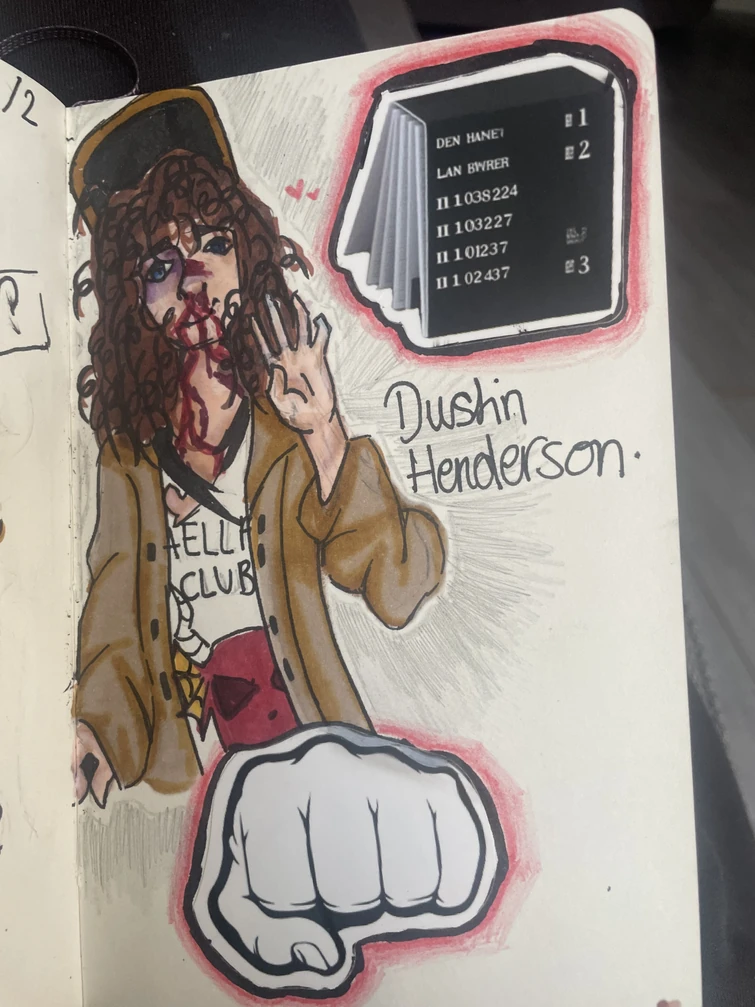 /2
DEN HANEI
LAN BWRER
II 1 038224
II 1 03227
II 1 01237
II 1 02437
1
2
3
Dustin
Henderson.
HELLF
CLUB